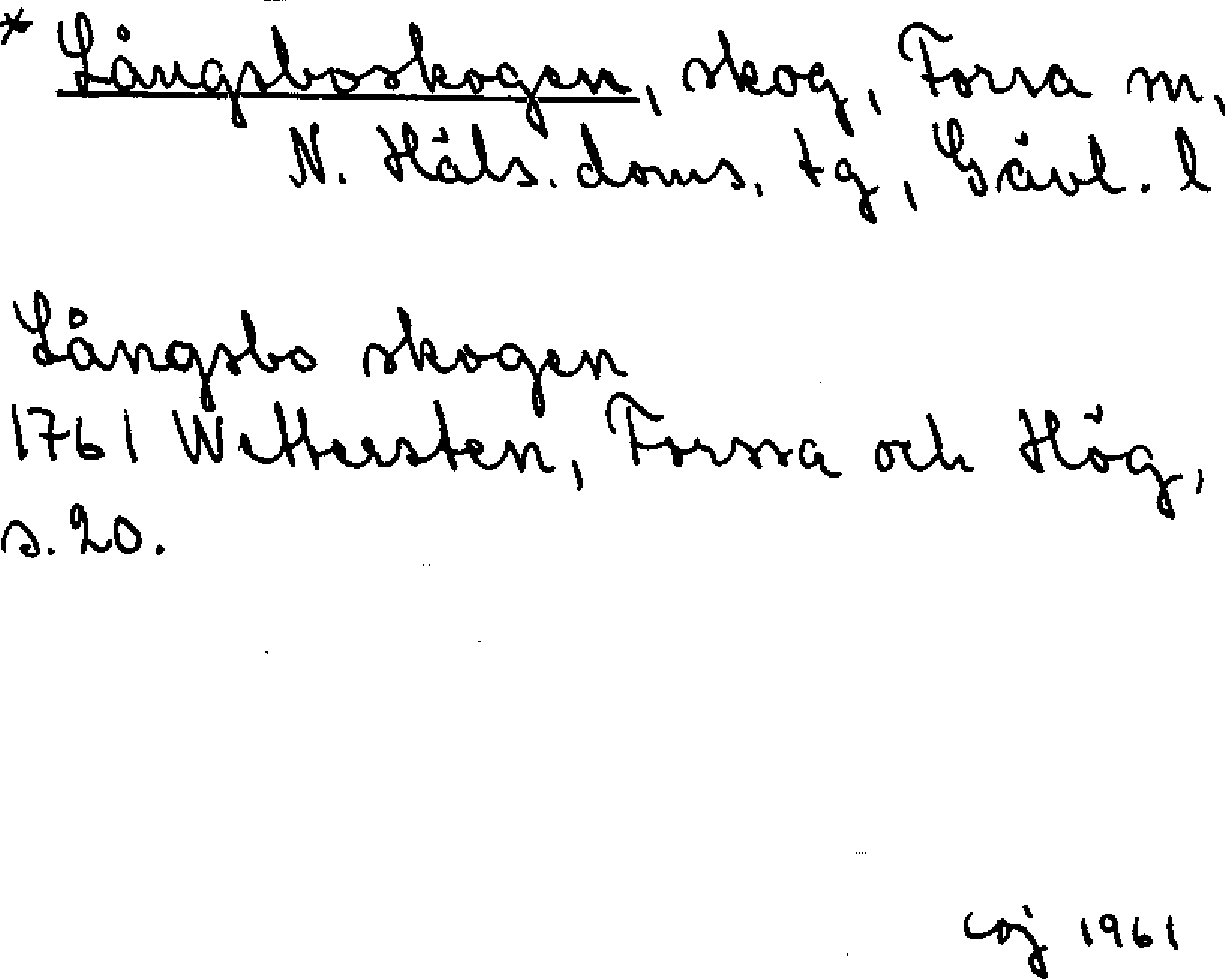 * Långsboskogen, skog, Forsa sn,
N. Häls. doms. tg, Gävl. l
Långsbo skogen
1761 Wettersten, Forssa och Hög,
s. 20.
coj 1961